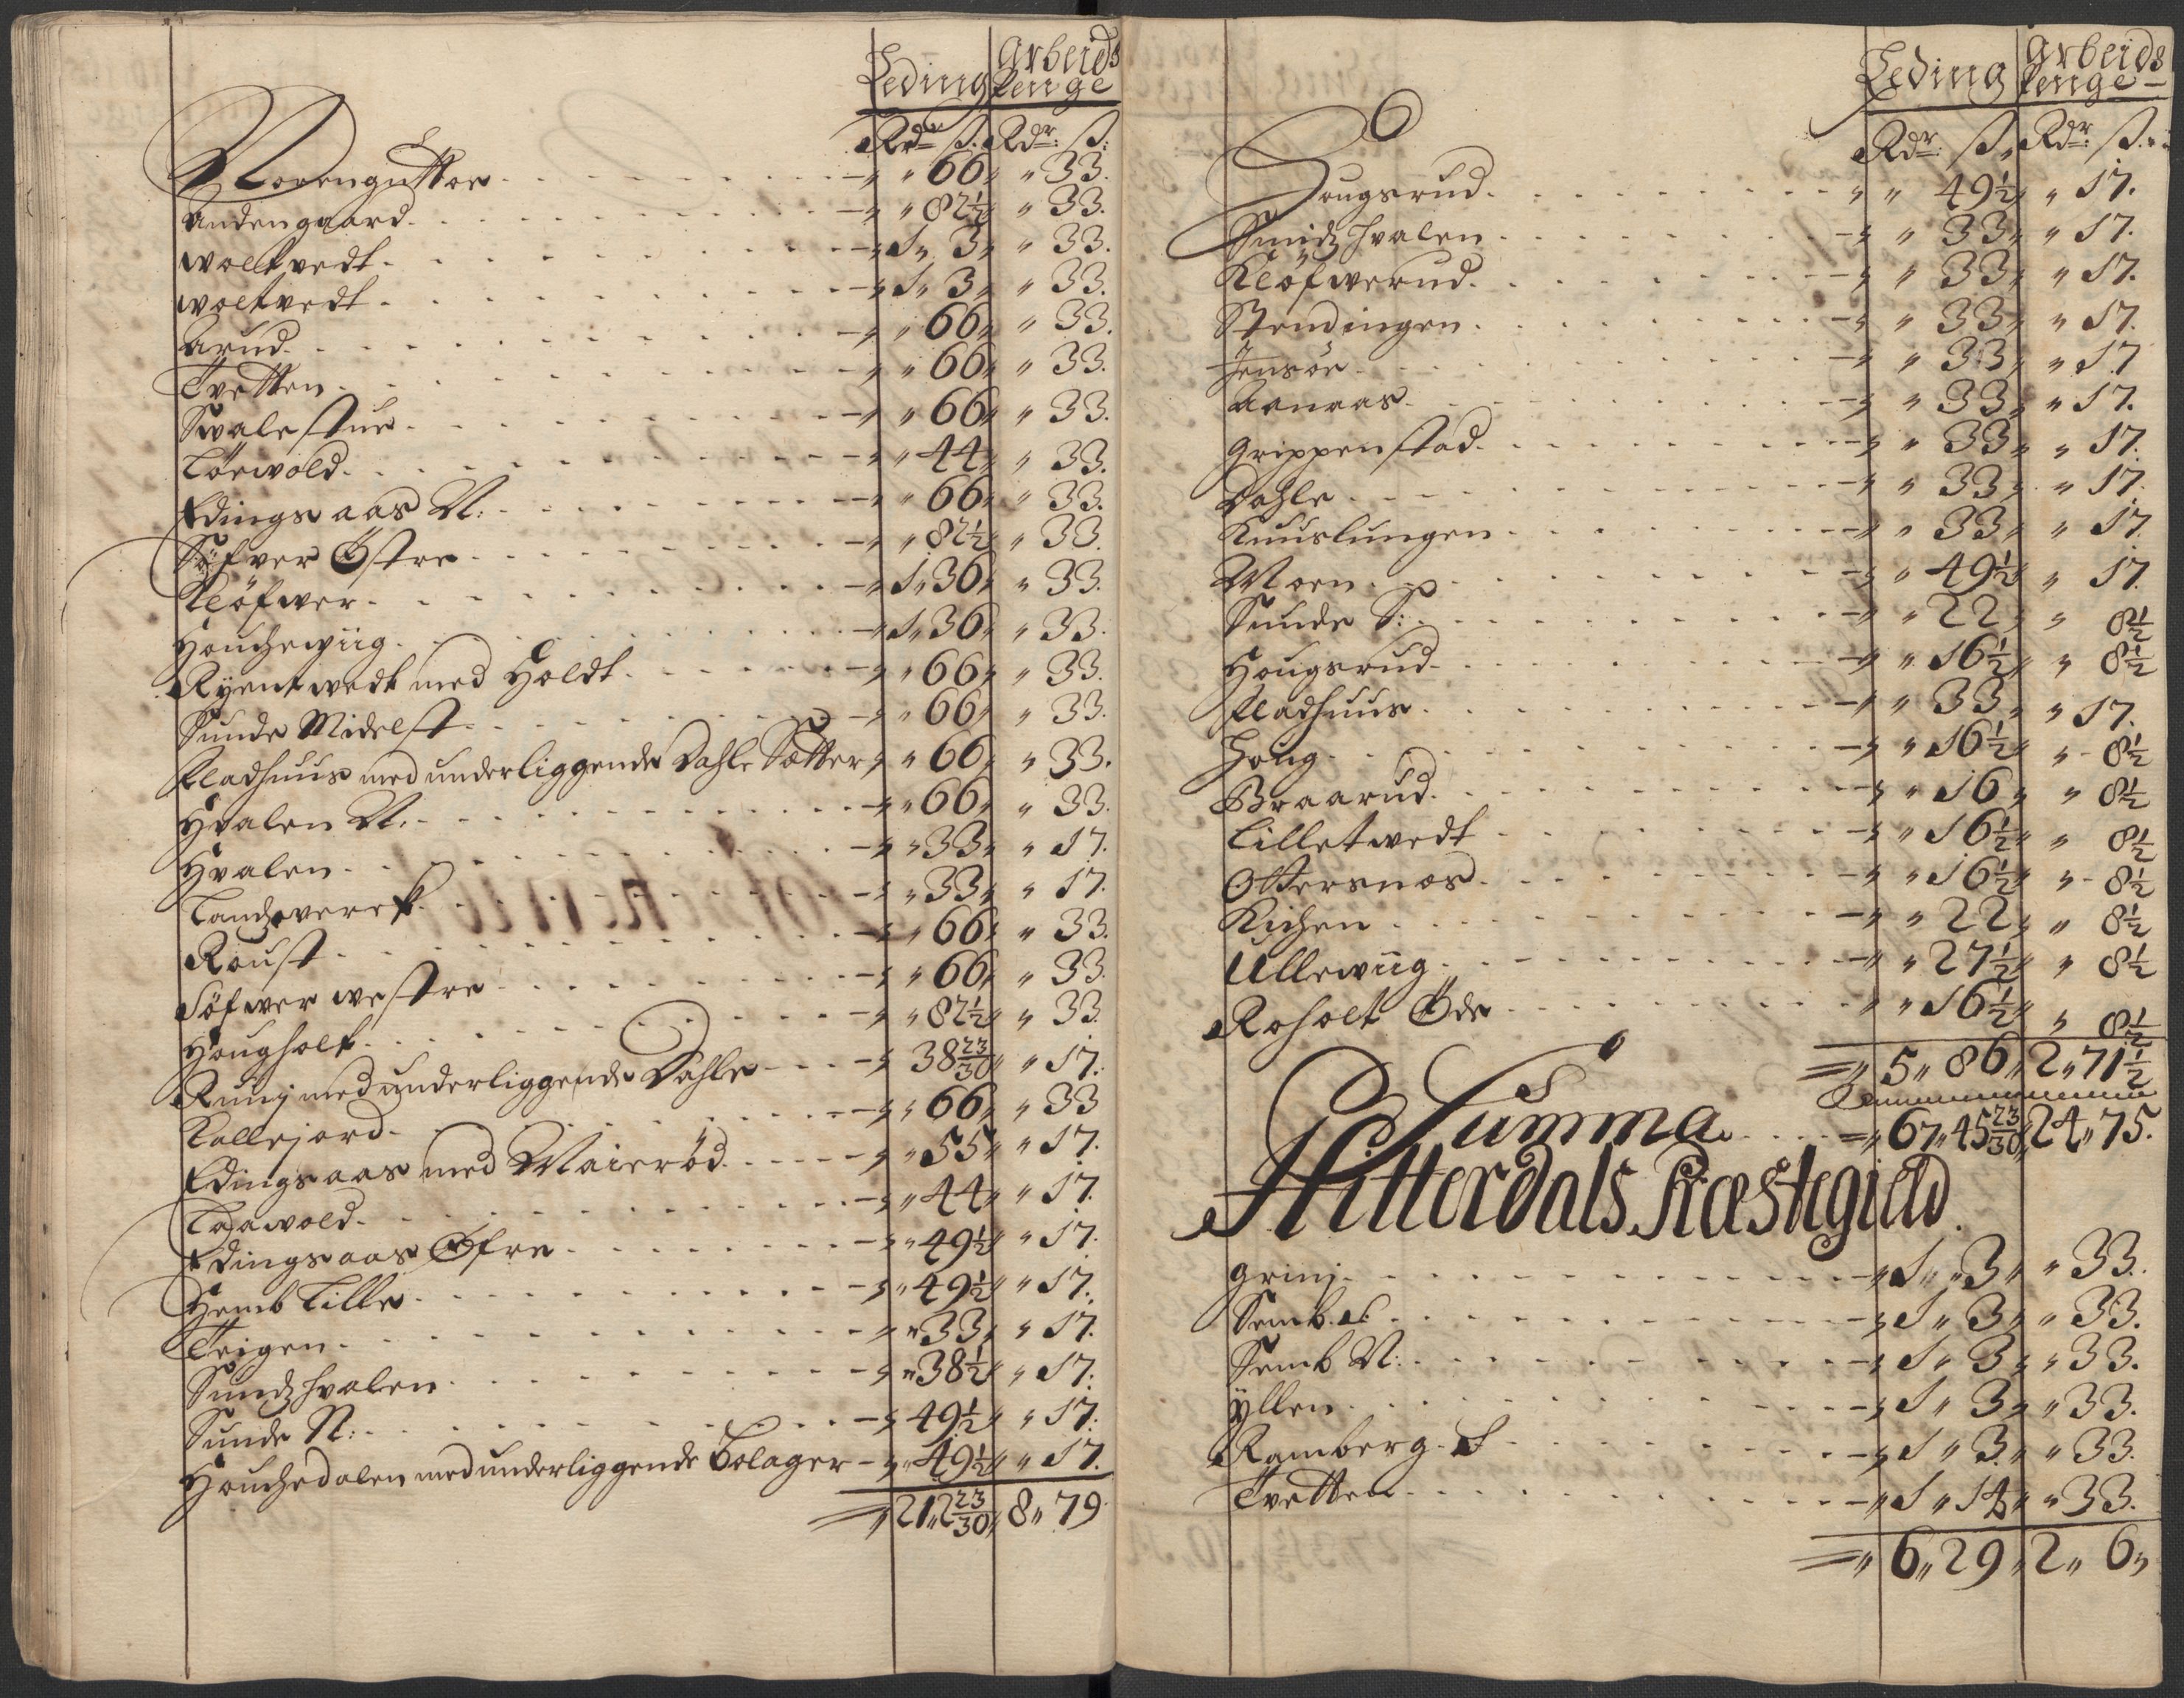 Leding Arbeids Penge
Rdr ß. Rdr: ß:
Norengutten - „ 66 „ 33.
Andengaard - „ 82½ „ 33.
Woltvedt - 1 „ 3 „ 33.
Woltvedt - 1 „ 3 „ 33.
Arud - „ 66 „ 33.
Tvetten - „ 66 „ 33.
Svalestue - „ 66 „ 33.
Törwold - „ 44 „ 33.
Edingsaas N: - „ 66 „ 33.
Söfver Östre - „ 82½ „ 33.
Klöfwer - 1 „ 36 „ 33.
Houchewiig - 1 „ 36 „ 33.
Ryentwedt med Holdt - „ 66 „ 33.
Sunde Midelst - „ 66 „ 33.
Fladhuus med underliggende Dahle Sætter „ 66 „ 33.
Hvalen N. - „ 66 „ 33.
Hvalen - „ 33 „ 17.
Landzverck - „ 33 „ 17.
Roust - „ 66 „ 33.
Söfwer westre - „ 66 „ 33.
Hougholt - „ 82½ „ 33.
Runj med underliggende Dahle - 38 23/30 „ 17.
Kallejord - „ 66 „ 33
Edingsaas med Maieröd - „ 55 „ 17.
Taawold - „ 44 „ 17.
Edingsaas Öfre - „ 49½ „ 17.
Hemb Lille - „ 49½ „ 17.
Teigen - „ 33 „ 17.
Sundz hvalen - „ 38½ „ 17.
Sunde N: - 49½ „ 17.
Houchedalen med underliggende Bolager - „ 49½ „ 17.
21 „ 2 23/30 „ 8 „ 79
Leding Arbeids Penge
Rdr: ß „ Rdr: ß.
Hougsrud - „ 49½ „ 17.
Smidz hvalen - „ 33 „ 17.
Klöfwerud - „ 33 „ 17.
Stendingen - „ 33 „ 17.
Jensöe - „ 33 „ 17
Aanaas - „ 33 „ 17.
Grippenstad - „ 33 „ 17.
Dahle - „ 33 „ 17.
Knuuslungen - „ 33 „ 17.
Moen - „ 49½ „ 17.
Sunde S: - „ 22 „ 8½
Hougsrud - „ 16½ „ 8½
Fladhuus - „ 33 „ 17.
Houg - „ 16½ „ 8½
Braarud - „ 16 „ 8½
Lilletwedt - „ 16½ „ 8½
Ottersnæs - „ 16½ „ 8½
Kichen - „ 22 „ 8½
Ullewiig - „ 27½ „ 8½
Roholt Öde - „ 16½ „ 8½
5 „ 86 „ 2 „ 71½
Summa - 67 „ 45 23/30 „ 24 „ 75.
Hitterdals Præstegield.
Grinj - 1 „ 3 „ 33.
Semb. S: - 1 „ 3 „ 33.
Semb N: - 1 „ 3 „ 33.
Ÿllen - 1 „ 3 „ 33.
Ramberg. S - 1 „ 3 „ 33.
Tvetten - 1 „ 14 „ 33.
6 „ 29 „ 2 „ 6 „